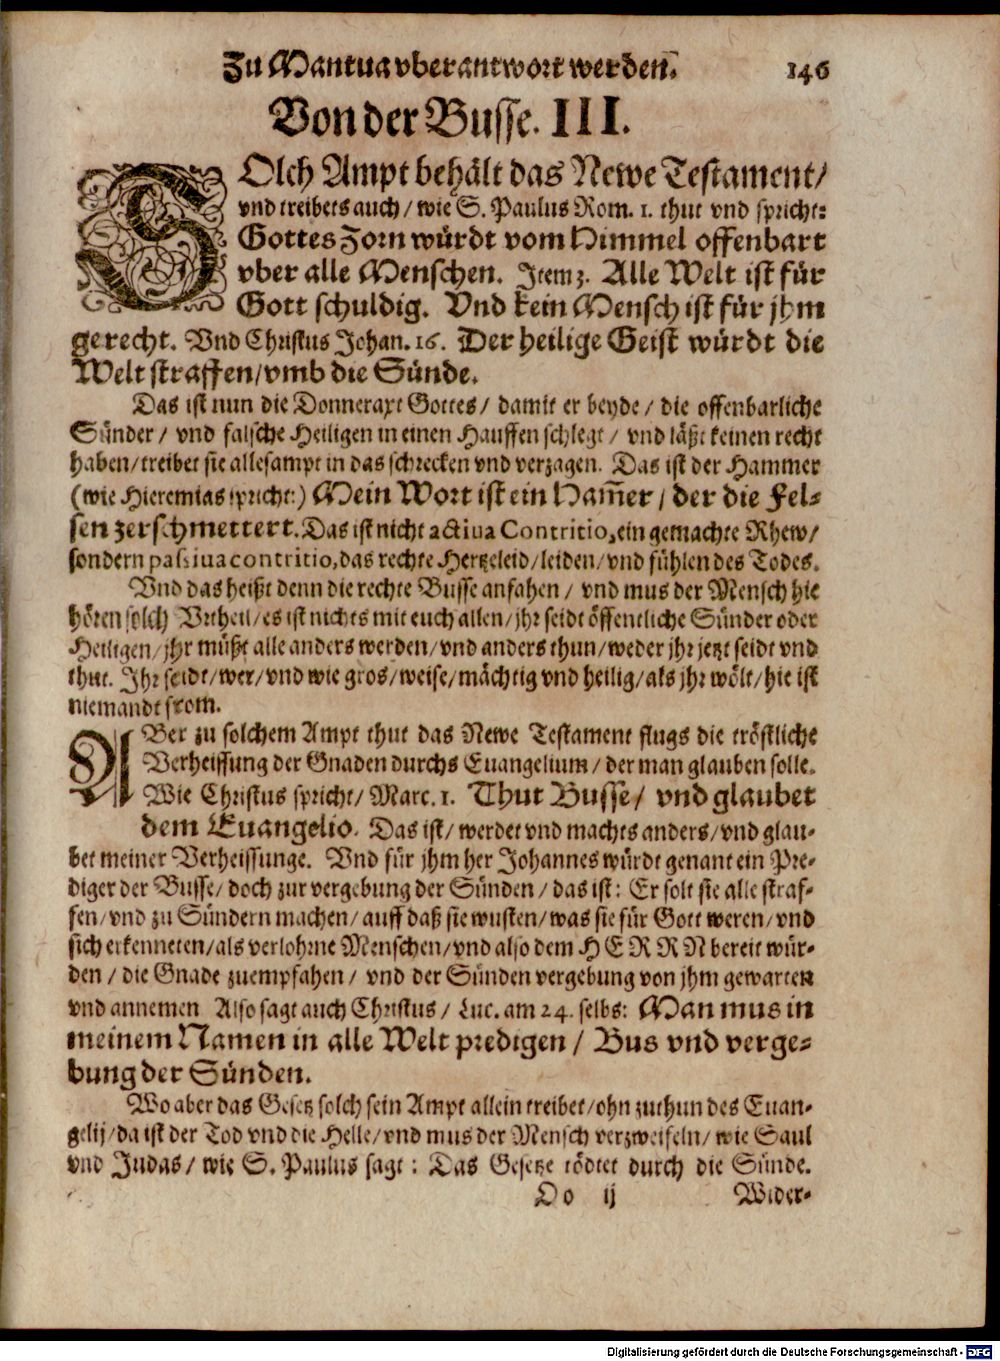 Zu Mantua vberantwort werden. 146
Von der Busse. III.
SOlch Ampt behält das Newe Testament/
vnd treibets auch/ wie S. Paulus Rom. 1. thut vnd spricht:
Gottes Zorn würdt vom Himmel offenbart
vber alle Menschen. Item 3. Alle Welt ist für
Gott schuldig. Vnd kein Mensch ist für jhm
gerecht. Vnd Christus Johan. 16. Der heilige Geist würdt die
Welt straffen/ vmb die Sünde.
Das ist nun die Donneraxt Gottes/ damit er beyde/ die offenbarliche
Sünder/ vnd falsche Heiligen in einen Hauffen schlegt/ vnd läßt keinen recht
haben/ treibet sie allesampt in das schrecken vnd verzagen. Das ist der Hammer
(wie Hieremias spricht:) Mein Wort ist ein Ham̄er/ der die Fel-
sen zerschmettert. Das ist nicht actiua Contritio, ein gemachte Rhew/
sondern passiua contritio, das rechte Hertzeleid/ leiden/ vnd fühlen des Todes.
Vnd das heißt denn die rechte Busse anfahen/ vnd mus der Mensch hie
hören solch Vrtheil/ es ist nichts mit euch allen/ jhr seidt öffentliche Sünder oder
Heiligen/ jhr müßt alle anders werden/ vnd anders thun/ weder jhr jetzt seidt vnd
thut. Ihr seidt/ wer/ vnd wie gros/ weise/ mächtig vnd heilig/ als jhr wölt/ hie ist
niemandt from.
ABer zu solchem Ampt thut das Newe Testament flugs die tröstliche
Verheissung der Gnaden durchs Euangelium/ der man glauben solle.
Wie Christus spricht/ Marc. 1. Thut Busse/ vnd glaubet
dem Euangelio. Das ist/ werdet vnd machts anders/ vnd glau-
bet meiner Verheissunge. Vnd für jhm her Johannes würdt genant ein Pre-
diger der Busse/ doch zur vergebung der Sünden/ das ist: Er solt sie alle straf-
fen/ vnd zu Sündern machen/ auff daß sie wusten/ was sie für Gott weren/ vnd
sich erkenneten/ als verlohrne Menschen/ vnd also dem HERRN bereit wür-
den/ die Gnade zuempfahen/ vnd der Sünden vergebung von jhm gewarten
vnd annemen Also sagt auch Christus/ Luc. am 24. selbs: Man mus in
meinem Namen in alle Welt predigen/ Bus vnd verge-
bung der Sünden.
Wo aber das Gesetz solch sein Ampt allein treibet/ ohn zuthun des Euan-
gelij/ da ist der Tod vnd die Helle/ vnd mus der Mensch verzweifeln/ wie Saul
vnd Judas/ wie S. Paulus sagt: Das Gesetze tödtet durch die Sünde.
Oo ij Wider-
Digitalisierung gefördert durch die Deutsche Forschungsgemeinschaft - DFG